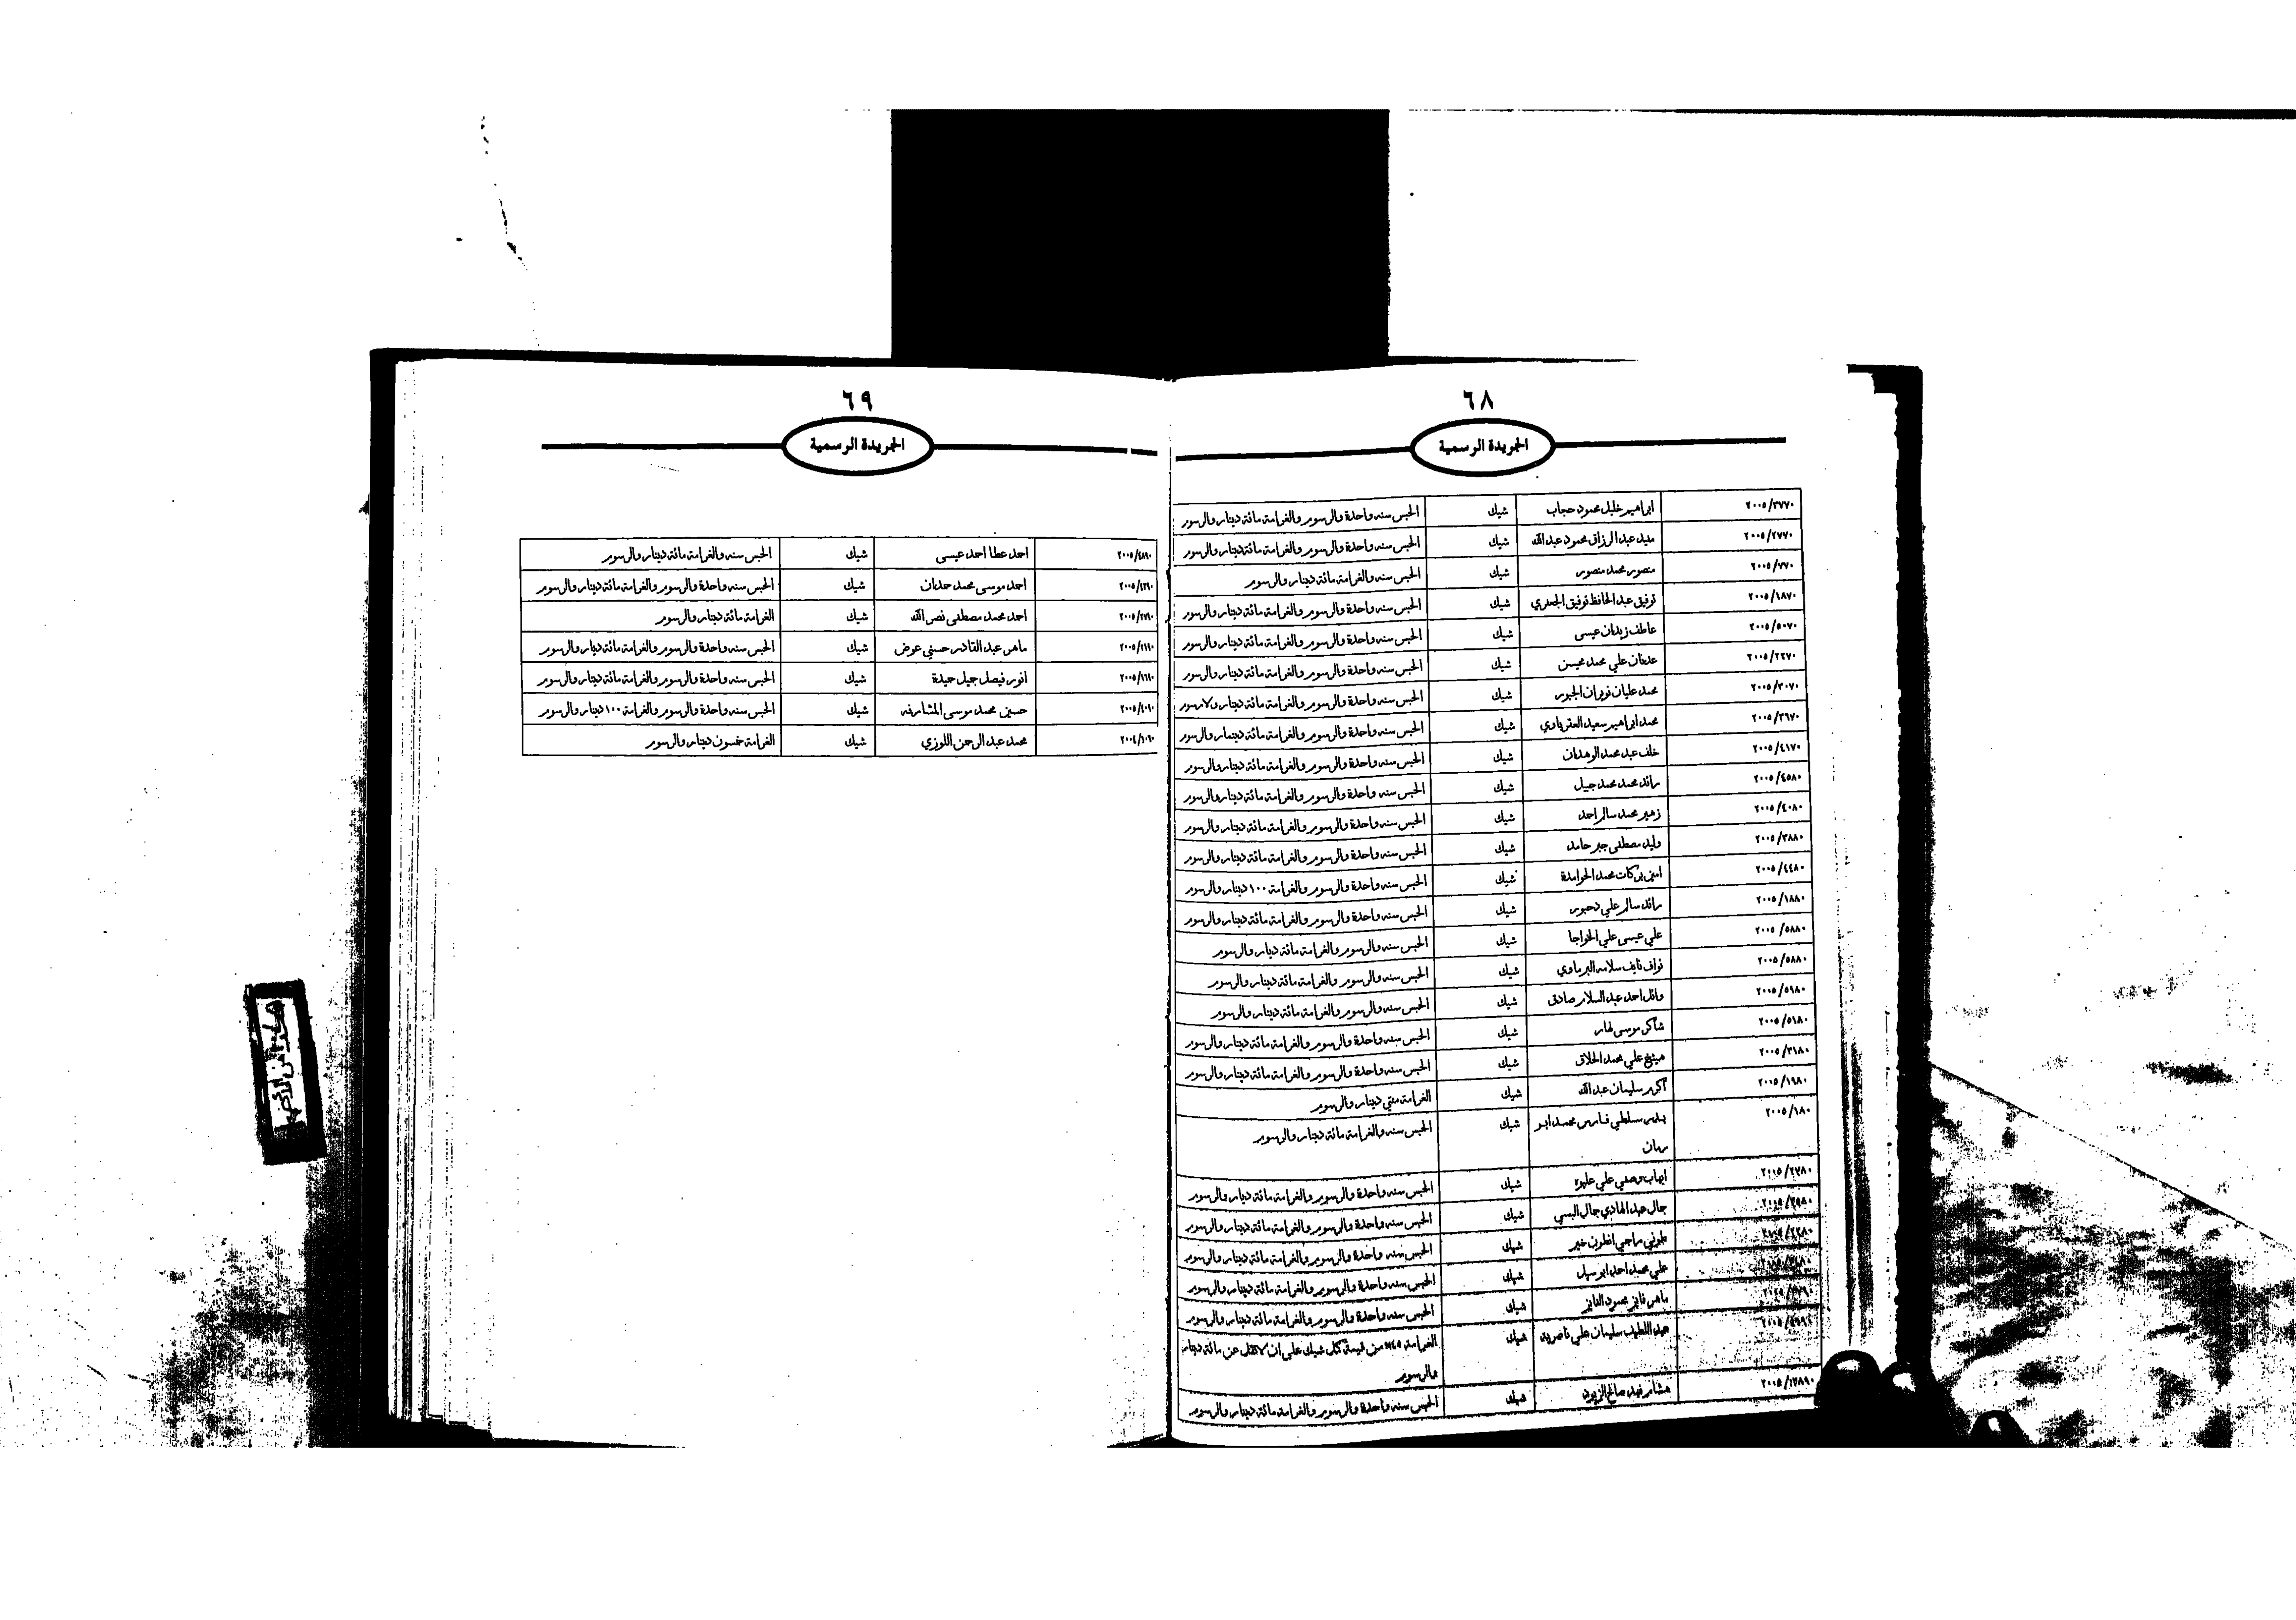 ٦٨
الجريدة الرسمية
٢٠٠٥/٣٧٧٠ ابراهيم خليل محمود حجاب شيك الحبس سنه واحدة والرسوم والغرامة مائة دينار والرسوم
٢٠٠٥/٢٧٧٠ عبد الرزاق محمود عبد الله شيك الحبس سنه واحدة والرسوم والغرامة مائة دينار والرسوم
٢٠٠٥/٧٧٠ منصور محمد منصور شيك الحبس سنه والغرامة مائة دينار والرسوم
٢٠٠٥/١٨٧٠ توفيق عبد الحافظ توفيق الجعبري شيك الحبس سنه واحدة والرسوم والغرامة مائة دينار والرسوم
٢٠٠٥/٥٠٧٠ عاطف زيدان عيسى شيك الحبس سنه واحدة والرسوم والغرامة مائة دينار والرسوم
٢٠٠٥/٢٢٧٠ عدنان علي محمد محيسن شيك الحبس سنه واحدة والرسوم والغرامة مائة دينار والرسوم
٢٠٠٥/٣٠٧٠ محمد عليان نويران الجبور شيك الحبس سنه واحدة والرسوم والغرامة مائة دينار ولارسوم
٢٠٠٥/٣٦٧٠ محمد ابراهيم سعيد العقرباوي شيك الحبس سنه واحدة والرسوم والغرامة مائة دينار والرسوم
٢٠٠٥/٤١٧٠ خلف عبد محمد الوهدان شيك الحبس سنه واحدة والرسوم والغرامة مائة دينار والرسوم
٢٠٠٥/٤٥٨٠ رائد محمد محمد جميل شيك الحبس سنه واحدة والرسوم والغرامة مائة دينار والرسوم
٢٠٠٥/٤٠٨٠ زهير محمد سالم احمد شيك الحبس سنه واحدة والرسوم والغرامة مائة دينار والرسوم
٢٠٠٥/٣٨٨٠ وليد مصطفى جبر حامد شيك الحبس سنه واحدة والرسوم والغرامة مائة دينار والرسوم
٢٠٠٥/٤٤٨٠ امين بركات محمد الحوامدة شيك الحبس سنه واحدة والرسوم والغرامة ١٠٠ دينار والرسوم
٢٠٠٥/١٨٨٠ رائد سالم علي دحبور شيك الحبس سنه واحدة والرسوم والغرامة مائة دينار والرسوم
٢٠٠٥/٥٨٨٠ علي عيسى علي الخواجا شيك الحبس سنه والرسوم والغرامة مائة دينار والرسوم
٢٠٠٥/٥٨٨٠ نواف نايف سلامه البرماوي شيك الحبس سنه والرسوم والغرامة مائة دينار والرسوم
٢٠٠٥/٥٩٨٠ وائل احمد عبد السلام صادق شيك الحبس سنه والرسوم والغرامة مائة دينار والرسوم
٢٠٠٥/٥١٨٠ شاكر موسى نهار شيك الحبس سنه واحدة والرسوم والغرامة مائة دينار والرسوم
٢٠٠٥/٣١٨٠ علي محمد الحلاق شيك الحبس سنه واحدة والرسوم والغرامة مائة دينار والرسوم
٢٠٠٥/١٩٨٠ اكرم سليمان عبد الله شيك الغرامة مئتي دينار والرسوم
٢٠٠٥/١٨٠ بدر سلطي فارس محمد ابو شيك الحبس سنه والغرامة مائة دينار والرسوم
رمان
٢٠٠٥/٢٧٨٠ ايهاب وصفي علي شيك الحبس سنه واحدة والرسوم والغرامة مائة دينار والرسوم
جمال عبد الهادي جمال شيك الحبس سنه واحدة والرسوم والغرامة مائة دينار والرسوم
راجي انطون خير شيك الحبس سنه واحدة والرسوم والغرامة مائة دينار والرسوم
علي محمد احمد شيك الحبس سنه واحدة والرسوم والغرامة مائة دينار والرسوم
ماهر فايز محمود الفايز شيك الحبس سنه واحدة والرسوم والغرامة مائة دينار والرسوم
عبد اللطيف سليمان علي ناصريه شيك الغرامة من قيمة كل شيك على ان لا تقل عن مائة دينار
والرسوم
٢٠٠٥/١٣٨٩٠ فهد صالح الزيود شيك الحبس سنه واحدة والرسوم والغرامة مائة دينار والرسوم
٦٩
الجريدة الرسمية
٢٠٠٥/٤٨٩٠ احمد عطا احمد عيسى شيك الحبس سنه والغرامة مائة دينار والرسوم
احمد موسى محمد حمدان شيك الحبس سنه واحدة والرسوم والغرامة مائة دينار والرسوم
احمد محمد مصطفى نصر الله شيك الغرامة مائة دينار والرسوم
ماهر عبد القادر حسني عوض شيك الحبس سنه واحدة والرسوم والغرامة مائة دينار والرسوم
انور فيصل جميل حميدة شيك الحبس سنه واحدة والرسوم والغرامة مائة دينار والرسوم
حسين محمد موسى المشارفه شيك الحبس سنه واحدة والرسوم والغرامة ١٠٠ دينار والرسوم
محمد عبد الرحمن اللوزي شيك الغرامة خمسون دينار والرسوم